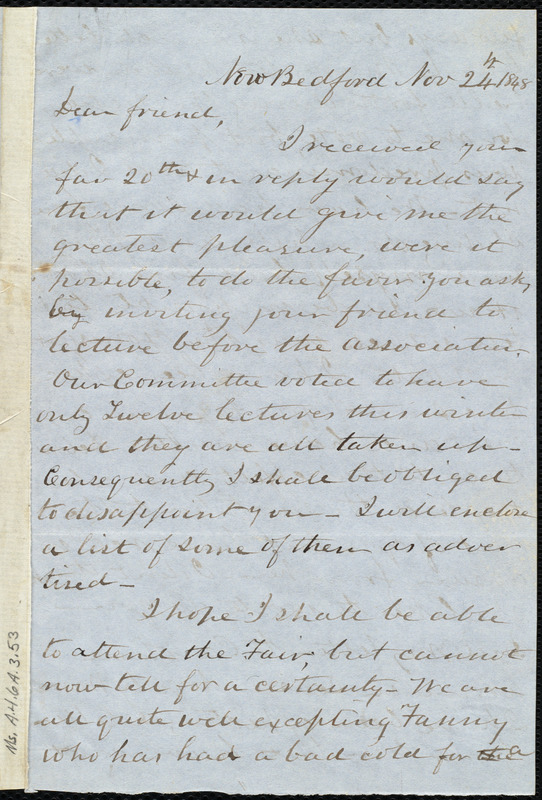 New Bedford Nov 24th 1848
Dear friend,
I received your
fav 20th & in reply would say
that it would give me the
greatest pleasure, were it
possible, to do the favor you ask,
by inviting your friend to
lecture before the association.
Our Committee voted to have
only Twelve lectures this winter
and they are all taken up -
Consequently I shall be obliged
to disappoint you - I will enclose
a list of some of them as adver
tised -
I hope I shall be able
to attend the Fair, but cannot
now tell for a certainty - We are
all quite well excepting Fanny
who has had a bad cold for a
Ms. A.4.6A.3.53